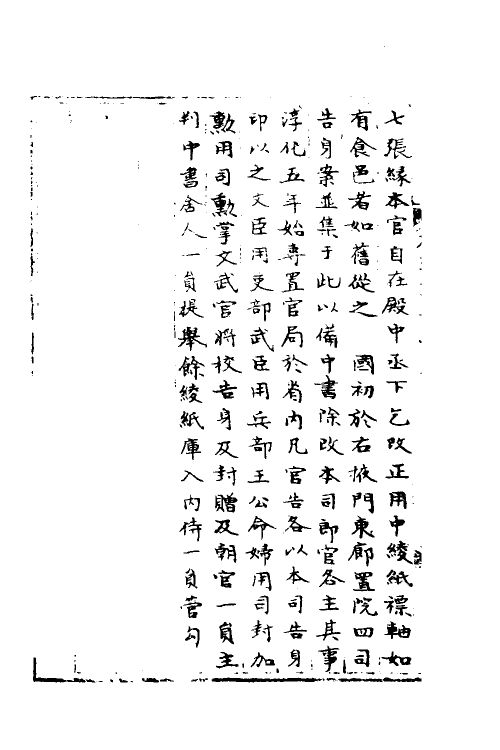 七張緣本官自在殿中丞下乞改正用中綾紙褾軸如
有食邑者如舊從之　國初於右掖門東廊置院四司
告身案並集于此以備中書除改本司郎官各主其事
淳化五年始專置官局於省內凡官告各以本司告身
印以之文臣用吏部武臣用兵部王公命婦用司封加
勳用司勳掌文武官將校告身及封贈及朝官一員主
判中書舍人一員提舉餘綾紙庫入內侍一員管勾